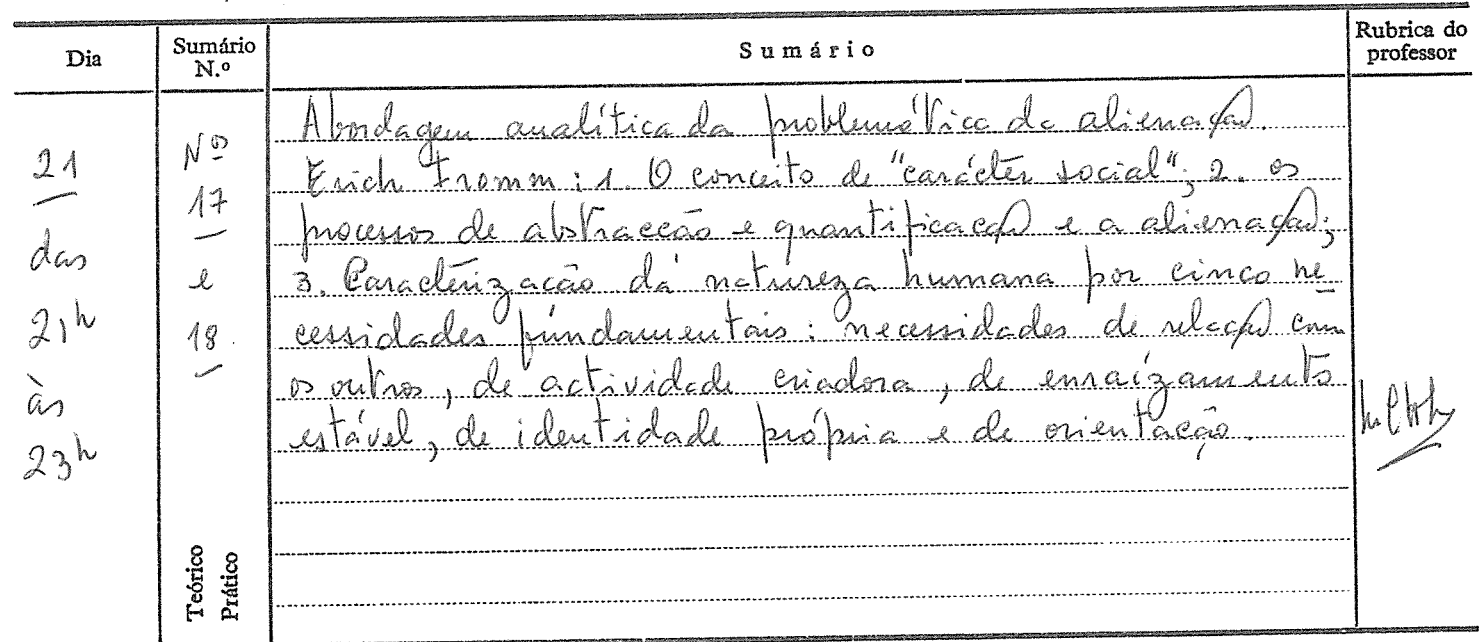 Dia
Sumário N.º
Sumário
Rubrica do professor
21
das
21h
às
23h
Nº
17
e
18.
Teórico
Prático
Abordagem analítica da problemática da alienação.
Erich Fromm: 1. O conceito de "carácter social"; 2. os
processos de abstracção e quantificação e a alienação;
3. Caracterização da natureza humana por cinco ne
cessidades fundamentais: necessidades de relação com
os outros, de actividade criadora, de enraízamento
estável, de identidade própria e de orientação.